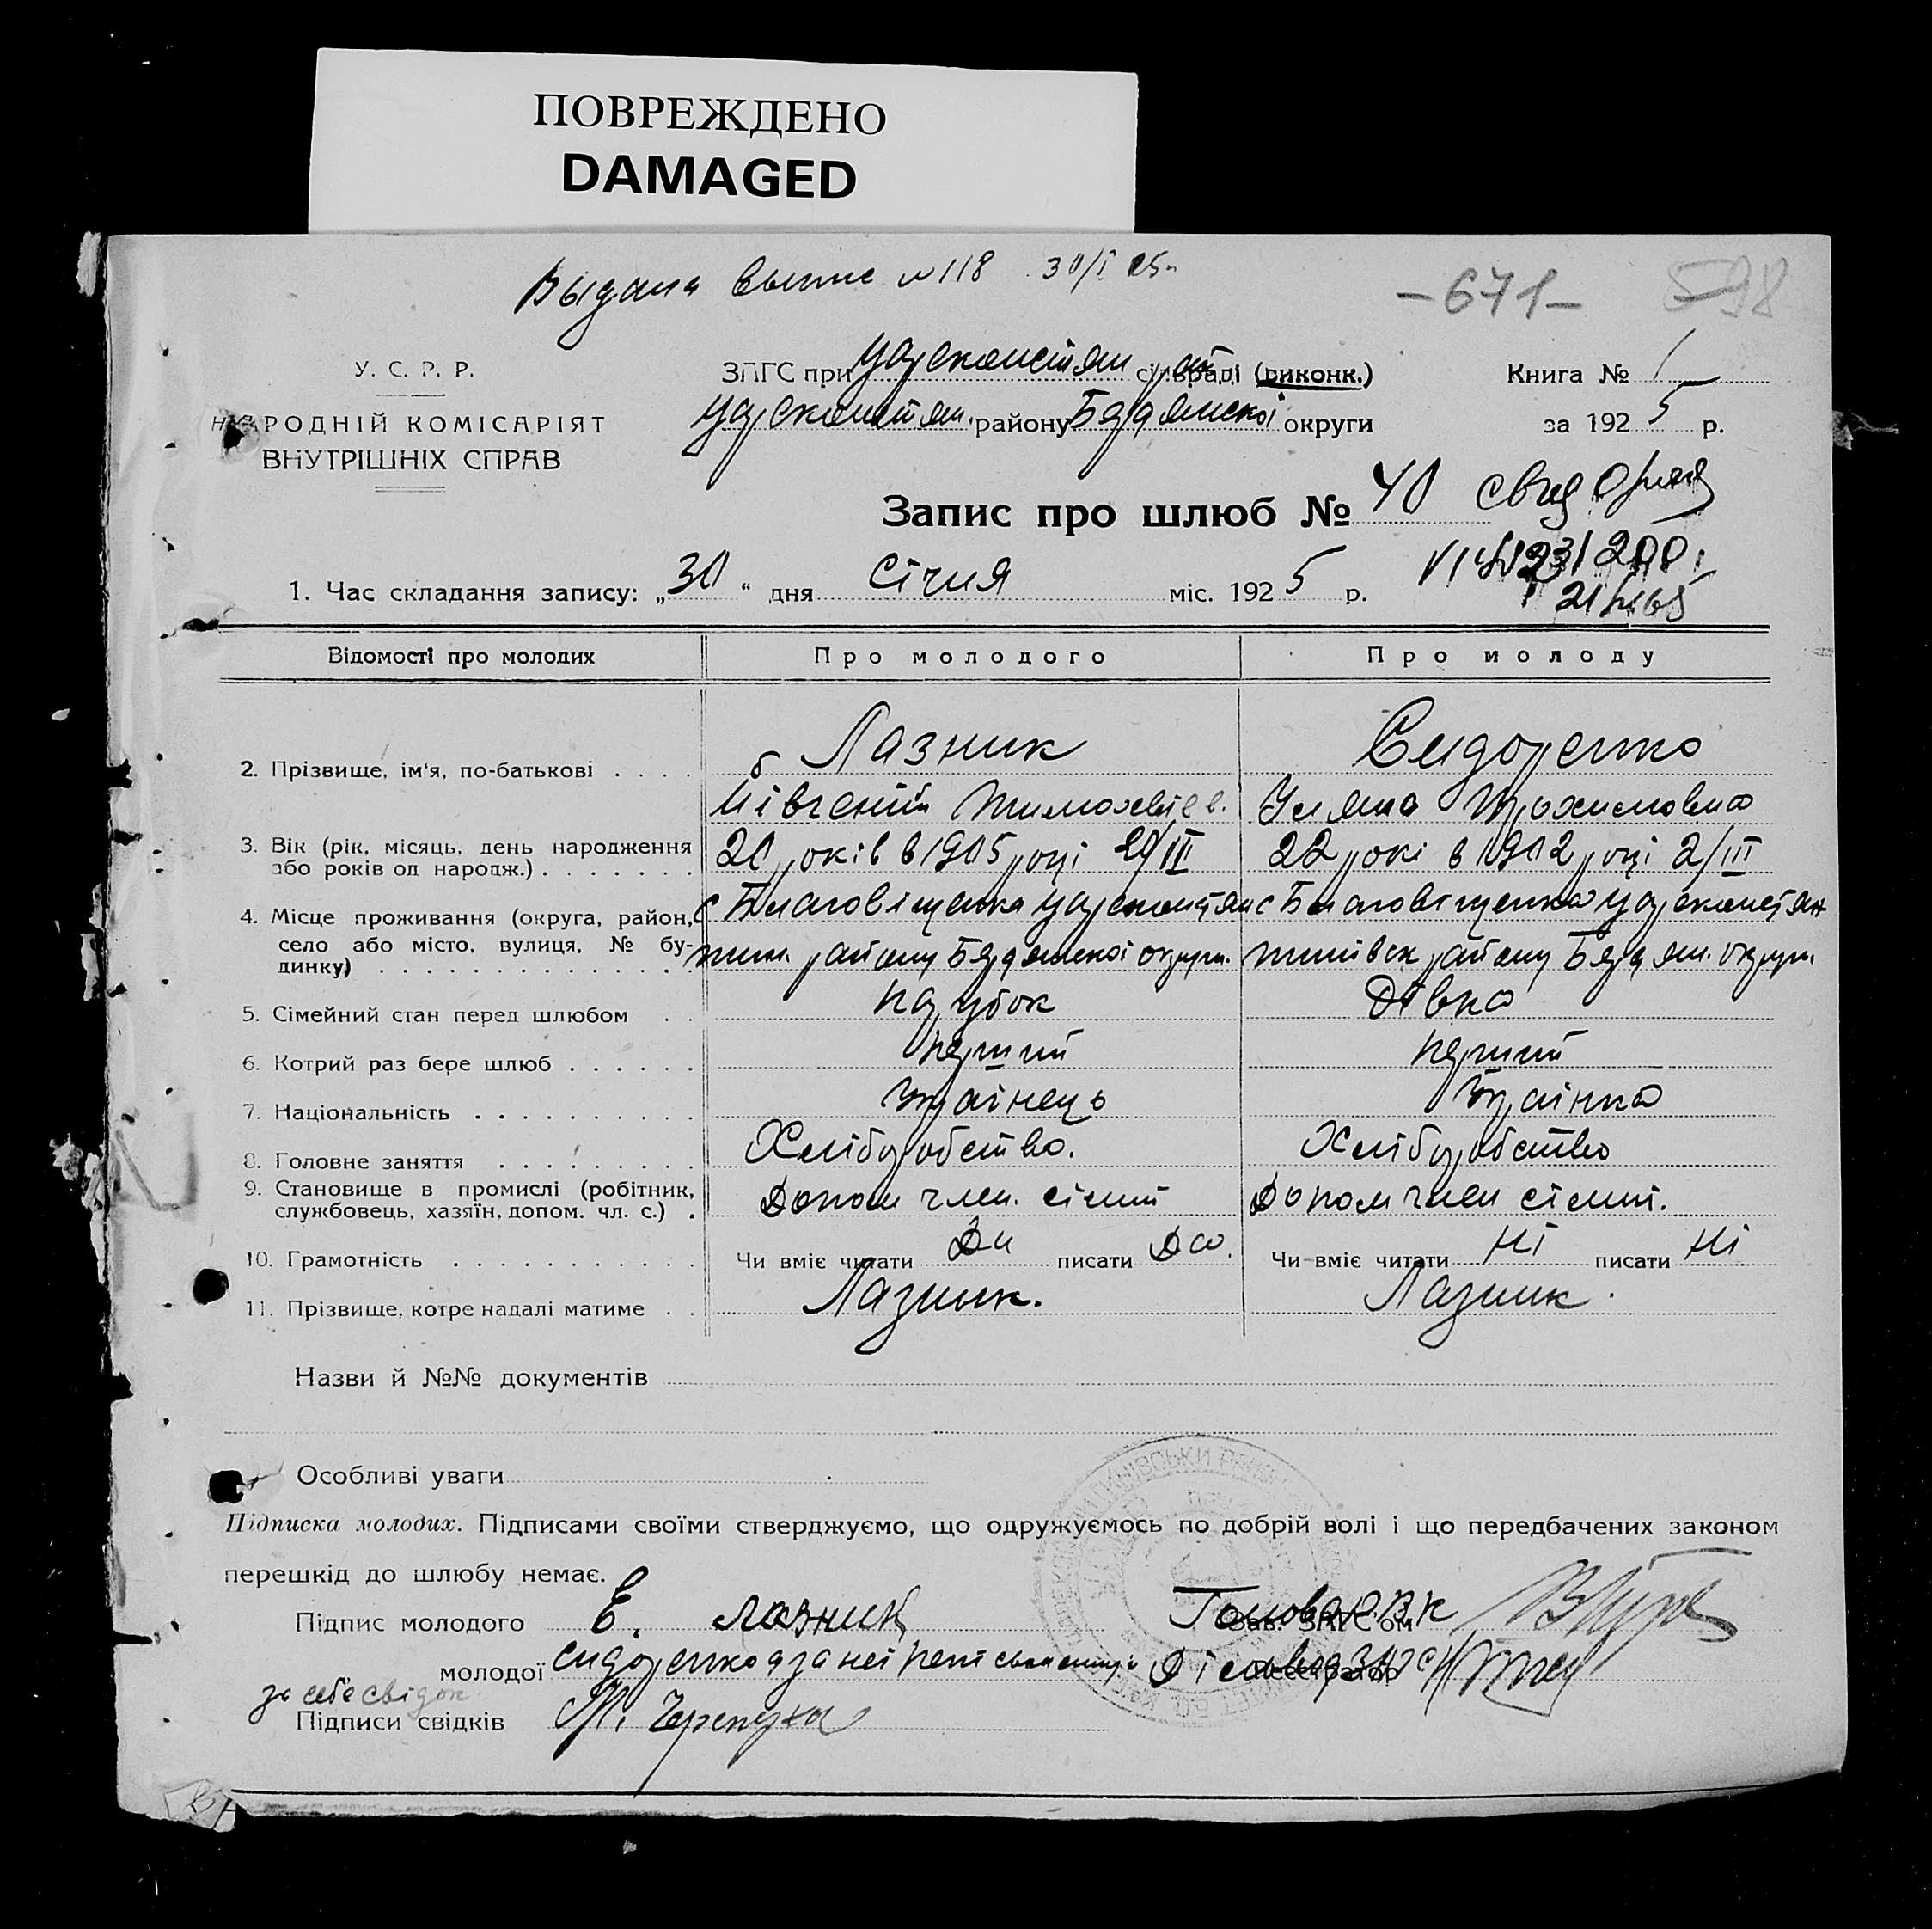 ПОВРЕЖДЕНО
DAMAGED
Выдана выпис № 118 30/I 25
-671- 598
У. С. Р. Р.
ЗАГС при Цареконстян рай сільраді (виконк.) Книга № 1
НАРОДНІЙ КОМІСАРІЯТ
Цареконстян. району Бердянскої округи за 1925 р.
ВНУТРІШНІХ СПРАВ
Запис про шлюб № 40
1. Час складання запису: „30“ дня Січня міс. 1925 р.
Відомості про молодих Про молодого Про молоду
2. Прізвище, ім'я, по-батькові Лазник Сидоренко
Тимохвіев. Уляна Трохимовна
3. Вік (рік, місяць, день народження або років од народж.) 20 років в 1905 році 20/III 22 років в 1902 році 2/III
4. Місце проживання (округа, район, село або місто, вулиця, № будинку) с Благовіщенка Цареконстян с Благовіщенка Цареконстян
тин. району Бердянскої округи. тинівск району Бердян. округи.
5. Сімейний стан перед шлюбом Парубок Дівка
6. Котрий раз бере шлюб перший перший
7. Національність Украінець Украінка
8. Головне заняття Хліборобство. Хліборобство
9. Становище в промислі (робітник, службовець, хазяїн, допом. чл. с.) Допом член. сімиі Допом член сімиі.
10. Грамотність Чи вміє читати Да писати Да. Чи вміє читати Ні писати Ні
11. Прізвище, котре надалі матиме Лазник. Лазник.
Назви й №№ документів
Особливі уваги
Підписка молодих. Підписами своїми стверджуємо, що одружуємось по добрій волі і що передбачених законом
перешкід до шлюбу немає.
Підпис молодого Е. Лазник Голова РВК Зав. ЗАГС'ом
молодої Сидоренко а за неі Діловод ЗАГС
за себе свідок
Підписи свідків